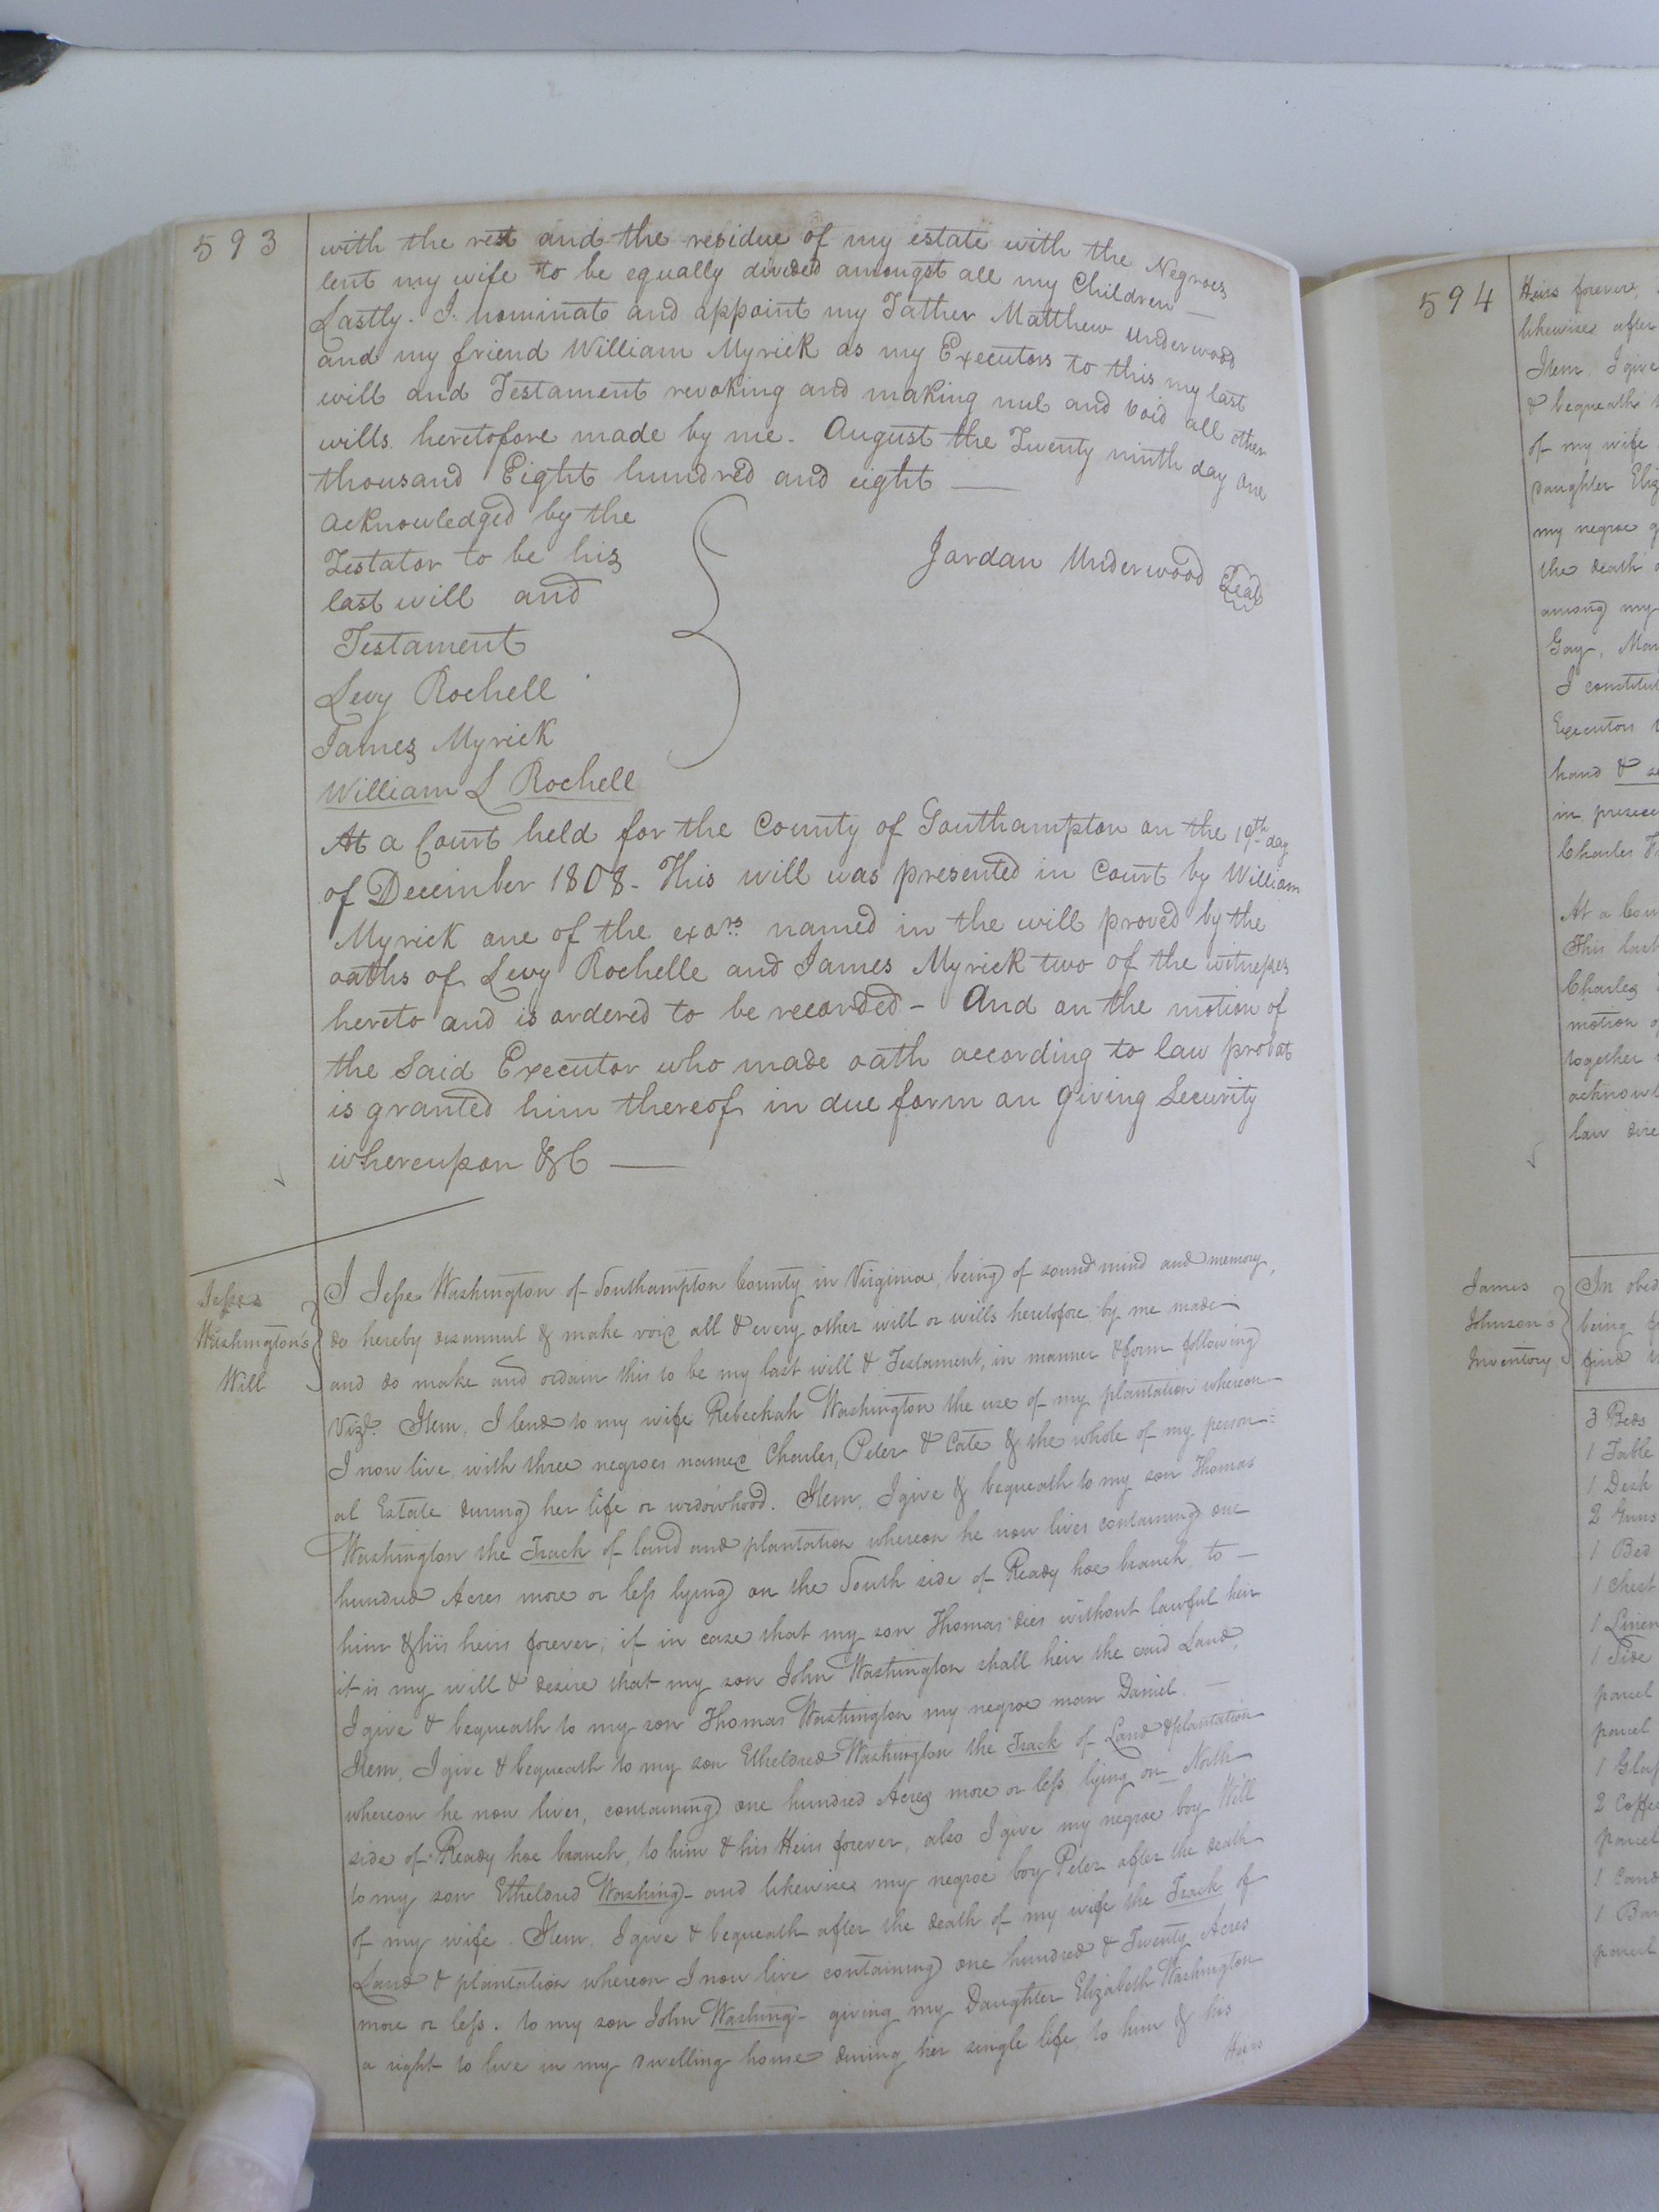 593
with the rest and the residue of my estate with the Negroes
lent my wife to be equally divided amongst all my Children —
Lastly. I. nominate and appoint my Father Matthew Underwood
and my friend William Myrick as my Executors to this my last
will and Testament revoking and making nul and void all other
wills. heretofore made by me. August the Twenty ninth day one
thousand Eight hundred and eight —
acknowledged by the
Testator to be his
last will and
Testament
Jordan Underwood Seal
Levy Rochell
James Myrick
William L Rochell
At a Court held for the County of Southampton on the 19th day
of December 1808 - This will was presented in Court by William
Myrick one of the exors. named in the will proved by the
oaths of Levy Rochelle and James Myrick two of the witnesses
hereto and is ordered to be recorded - And on the motion of
the said Executor who made oath according to law probat
is granted him thereof in due form on giving Security
whereupon &C —
Jesse
Washington's
Will
I Jesse Washington of Southampton County in Virginia, being of sound mind and memory,
do hereby disannul & make void all & every other will or wills heretofore by me made
and do make and ordain this to be my last will & Testament, in manner & form following
Vizt. Item, I lend to my wife Rebeckah Washington the use of my plantation whereon
I now live with three negroes named Charles, Peter & Cate & the whole of my person=
al Estate during her life or widowhood. Item, I give & bequeath to my son Thomas
Washington the Track of land and plantation whereon he now lives containing one
hundred Acres more or less lying on the South side of Ready hoe branch, to —
him & his heirs forever; if in case that my son Thomas dies without lawful heir
it is my will & desire that my son John Washington shall heir the said Land,
I give & bequeath to my son Thomas Washington my negroe man Daniel. —
Item, I give & bequeath to my son Etheldred Washington the Track of Land & plantation
whereon he now lives, containing one hundred Acres more or less, lying on North
side of Ready hoe branch, to him & his Heirs forever, also I give my negroe boy Will
to my son Etheldred Washing- and likewise my negroe boy Peter after the death
of my wife. Item. I give & bequeath after the death of my wife the Track of
Land & plantation whereon I now live containing one hundred & Twenty Acres
more or less. to my son John Washing- giving my Daughter Elizabeth Washington
a right to live in my dwelling house during her single life, to him & his
Heirs
594
Heirs forever,
likewise after
Item, I give
& bequeath
of my wife
Daughter Eliz
my negroe g
the death
among my
Gay, Mar
I constitut
Executors
hand & se
in presence
Charles
At a Cou
This last
Charles
motion o
together
acknowl
law dire
James
Johnson's
Inventory
In obed
being
find
3 Beds
1 Table
1 Desk
2 Guns
1 Bed
1 Chest
1 Linen
1 Side
parcel
parcel
1 Glass
2 Coffe
parcel
1 Cand
1 Bar
parcel